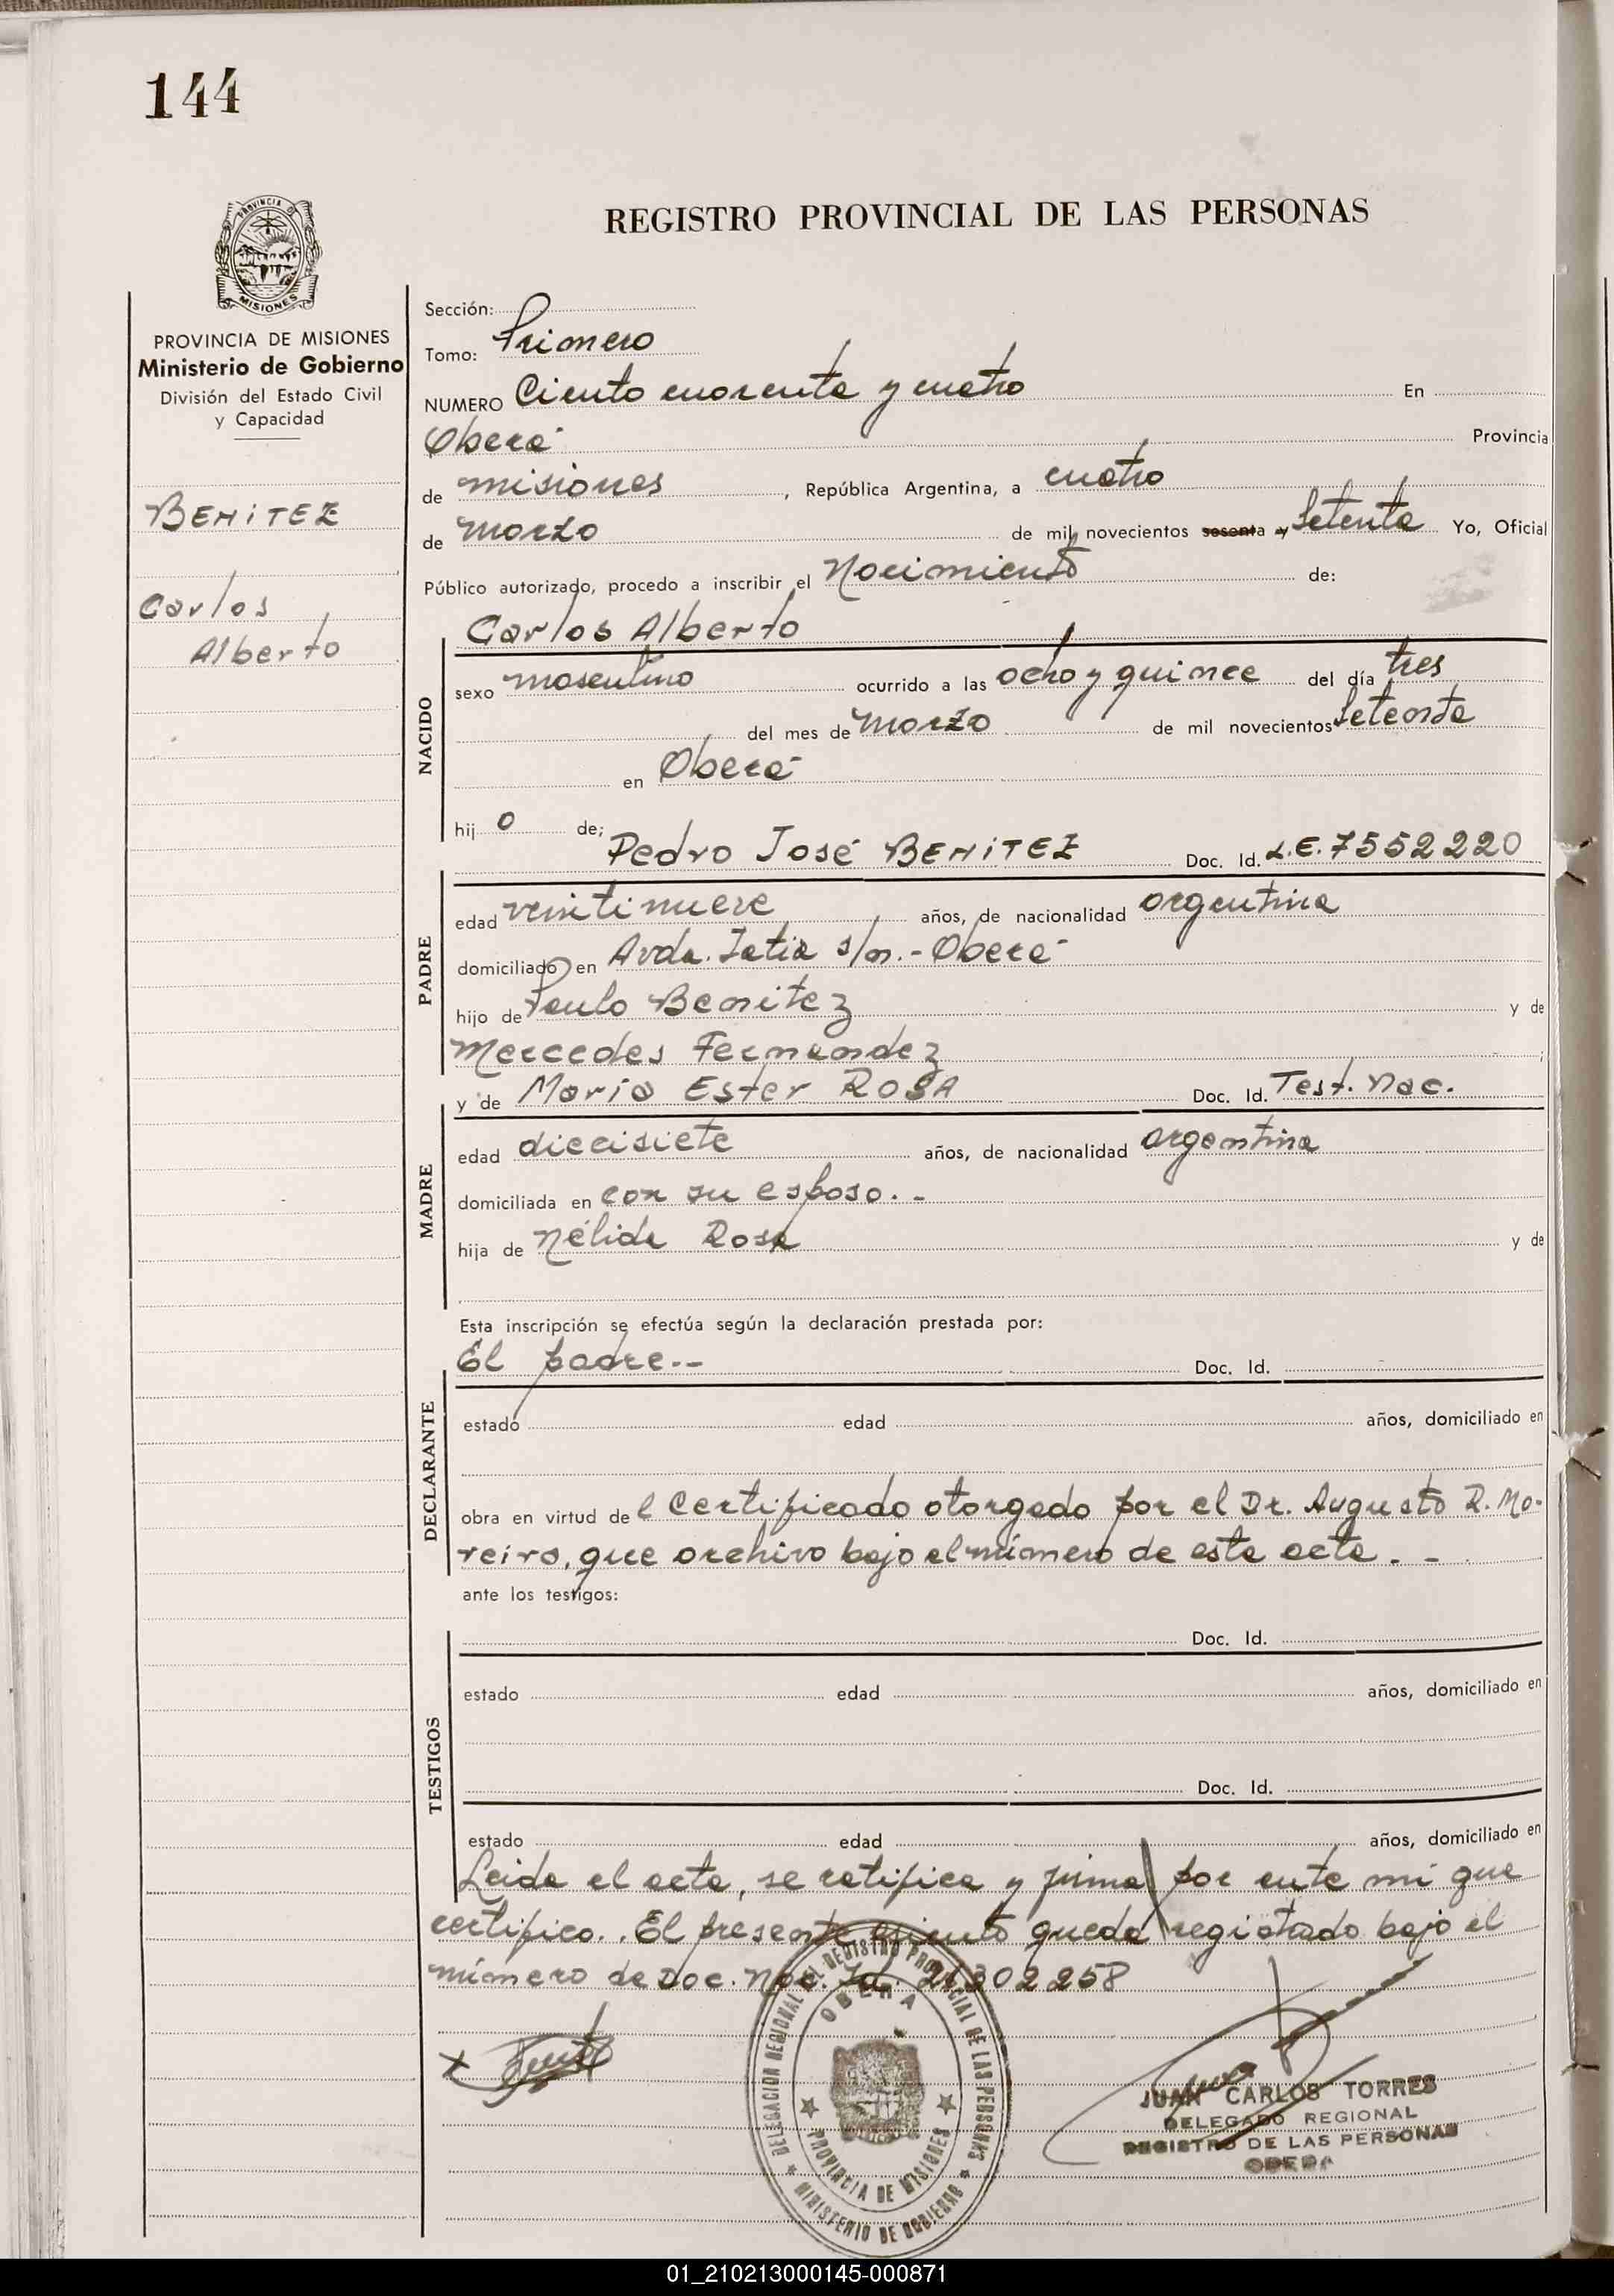 144
PROVINCIA
MISIONES
REGISTRO PROVINCIAL DE LAS PERSONAS
PROVINCIA DE MISIONES
Ministerio de Gobierno
División del Estado Civil
y Capacidad
BENITEZ
Carlos
Alberto
Sección:
Tomo: Primero
NUMERO Ciento cuarenta y cuatro En
Oberá Provincia
de misiones , República Argentina, a cuatro
de marzo de mil novecientos sesenta y Setenta Yo, Oficial
Público autorizado, procedo a inscribir el Nacimiento de:
Carlos Alberto
NACIDO
sexo masculino ocurrido a las ocho y quince del día tres
del mes de marzo de mil novecientos Setenta
en Oberá
hij o de; Pedro José BENITEZ Doc. Id. L.E. 7552220
PADRE
edad veintinueve años, de nacionalidad argentina
domiciliado en Avda. s/n.- Oberá
hijo de Paulo Benitez y de
Mercedes Fernandez ;
y de Maria Ester ROSA Doc. Id. Test. Nac.
MADRE
edad diecisiete años, de nacionalidad argentina
domiciliada en con su esposo.-
hija de Nélida Rosa y de
Esta inscripción se efectúa según la declaración prestada por:
El padre.-- Doc. Id.
DECLARANTE
estado edad años, domiciliado en
obra en virtud de l Certificado otorgado por el Dr. Augusto R. Mo-
reira, que archivo bajo el número de esta acta.-
ante los testigos:
Doc. Id.
TESTIGOS
estado edad años, domiciliado en
Doc. Id.
estado edad años, domiciliado en
Leida el acta, se ratifica y firma por ante mí que
certifico.. El presente asiento queda registrado bajo el
número de Doc. Nac. Id. 21.302.258
DELEGACION REGIONAL DEL REGISTRO PROVINCIAL DE LAS PERSONAS
OBERA
PROVINCIA DE MISIONES
MINISTERIO DE GOBIERNO
JUAN CARLOS TORRES
DELEGADO REGIONAL
REGISTRO DE LAS PERSONAS
OBERA
01_210213000145-000871